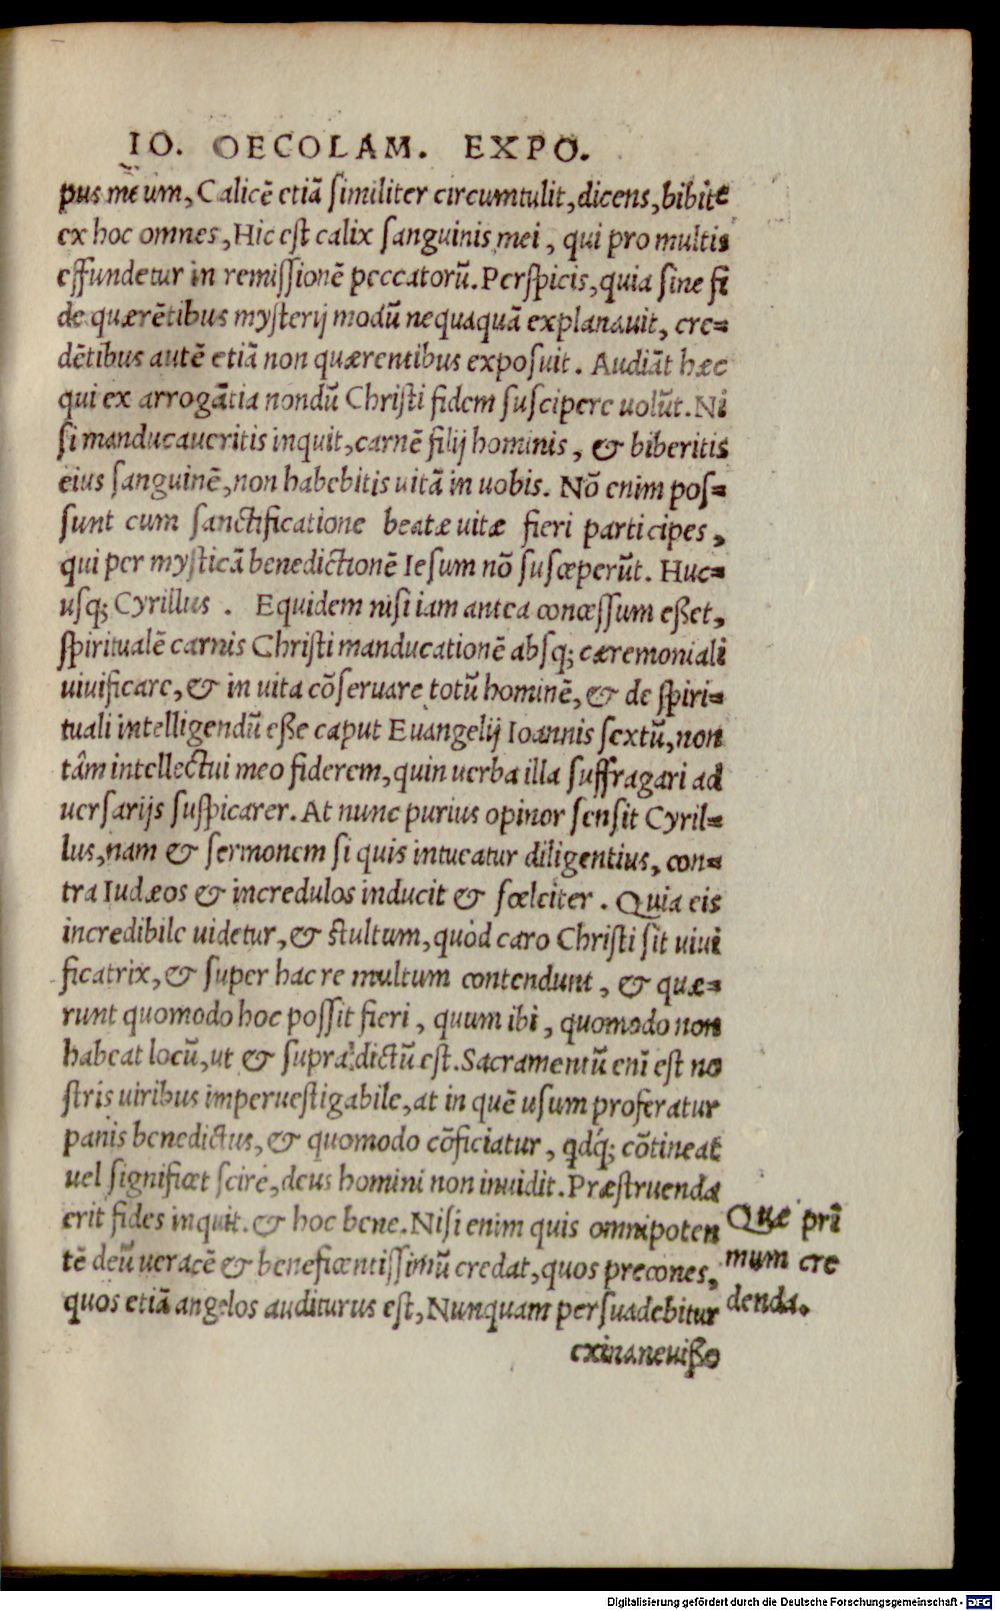 IO. OECOLAM. EXPO.
pus meum, Calicē etiā similiter circumtulit, dicens, bibite
ex hoc omnes, Hic est calix sanguinis mei, qui pro multis
effundetur in remissionē peccatorū. Perspicis, quia sine fi
de quærētibus mysterij modū nequaquā explanauit, cre=
dētibus autē etiā non quærentibus exposuit. Audiāt hæc
qui ex arrogātia nondū Christi fidem suscipere uolūt. Ni
si manducaueritis inquit, carnē filij hominis, & biberitis
eius sanguinē, non habebitis uitā in uobis. Nō enim pos=
sunt cum sanctificatione beatæ uitæ fieri participes,
qui per mysticā benedictionē Iesum nō susceperūt. Huc=
usq; Cyrillus. Equidem nisi iam antea concessum eßet,
spiritualē carnis Christi manducationē absq; cæremoniali
uiuificare, & in uita cōseruare totū hominē, & de spiri=
tuali intelligendū eße caput Euangelij Ioannis sextū, non
tâm intellectui meo fiderem, quin uerba illa suffragari ad
uersarijs suspicarer. At nunc purius opinor sensit Cyril=
lus, nam & sermonem si quis intueatur diligentius, con=
tra Iudæos & incredulos inducit & fœlciter. Quia eis
incredibile uidetur, & stultum, quòd caro Christi sit uiui
ficatrix, & super hac re multum contendunt, & quæ=
runt quomodo hoc possit fieri, quum ibi, quomodo non
habeat locū, ut & supra dictū est. Sacramentū enī est no
stris uiribus imperuestigabile, at in quē usum proferatur
panis benedictus, & quomodo cōficiatur, qdq́; cōtineat
uel significet scire, deus homini non inuidit. Præstruenda
erit fides inquit. & hoc bene. Nisi enim quis omnipoten
tē deū ueracē & beneficentissimū credat, quos precones,
quos etiā angelos auditurus est, Nunquam persuadebitur
exinaneuißo
Quæ pri
mum cre
denda.
Digitalisierung gefördert durch die Deutsche Forschungsgemeinschaft - DFG